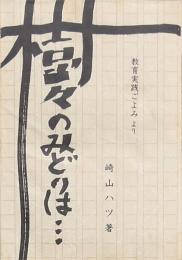 樹々のみどりは…
教育実践ごよみより
崎山ハツ著